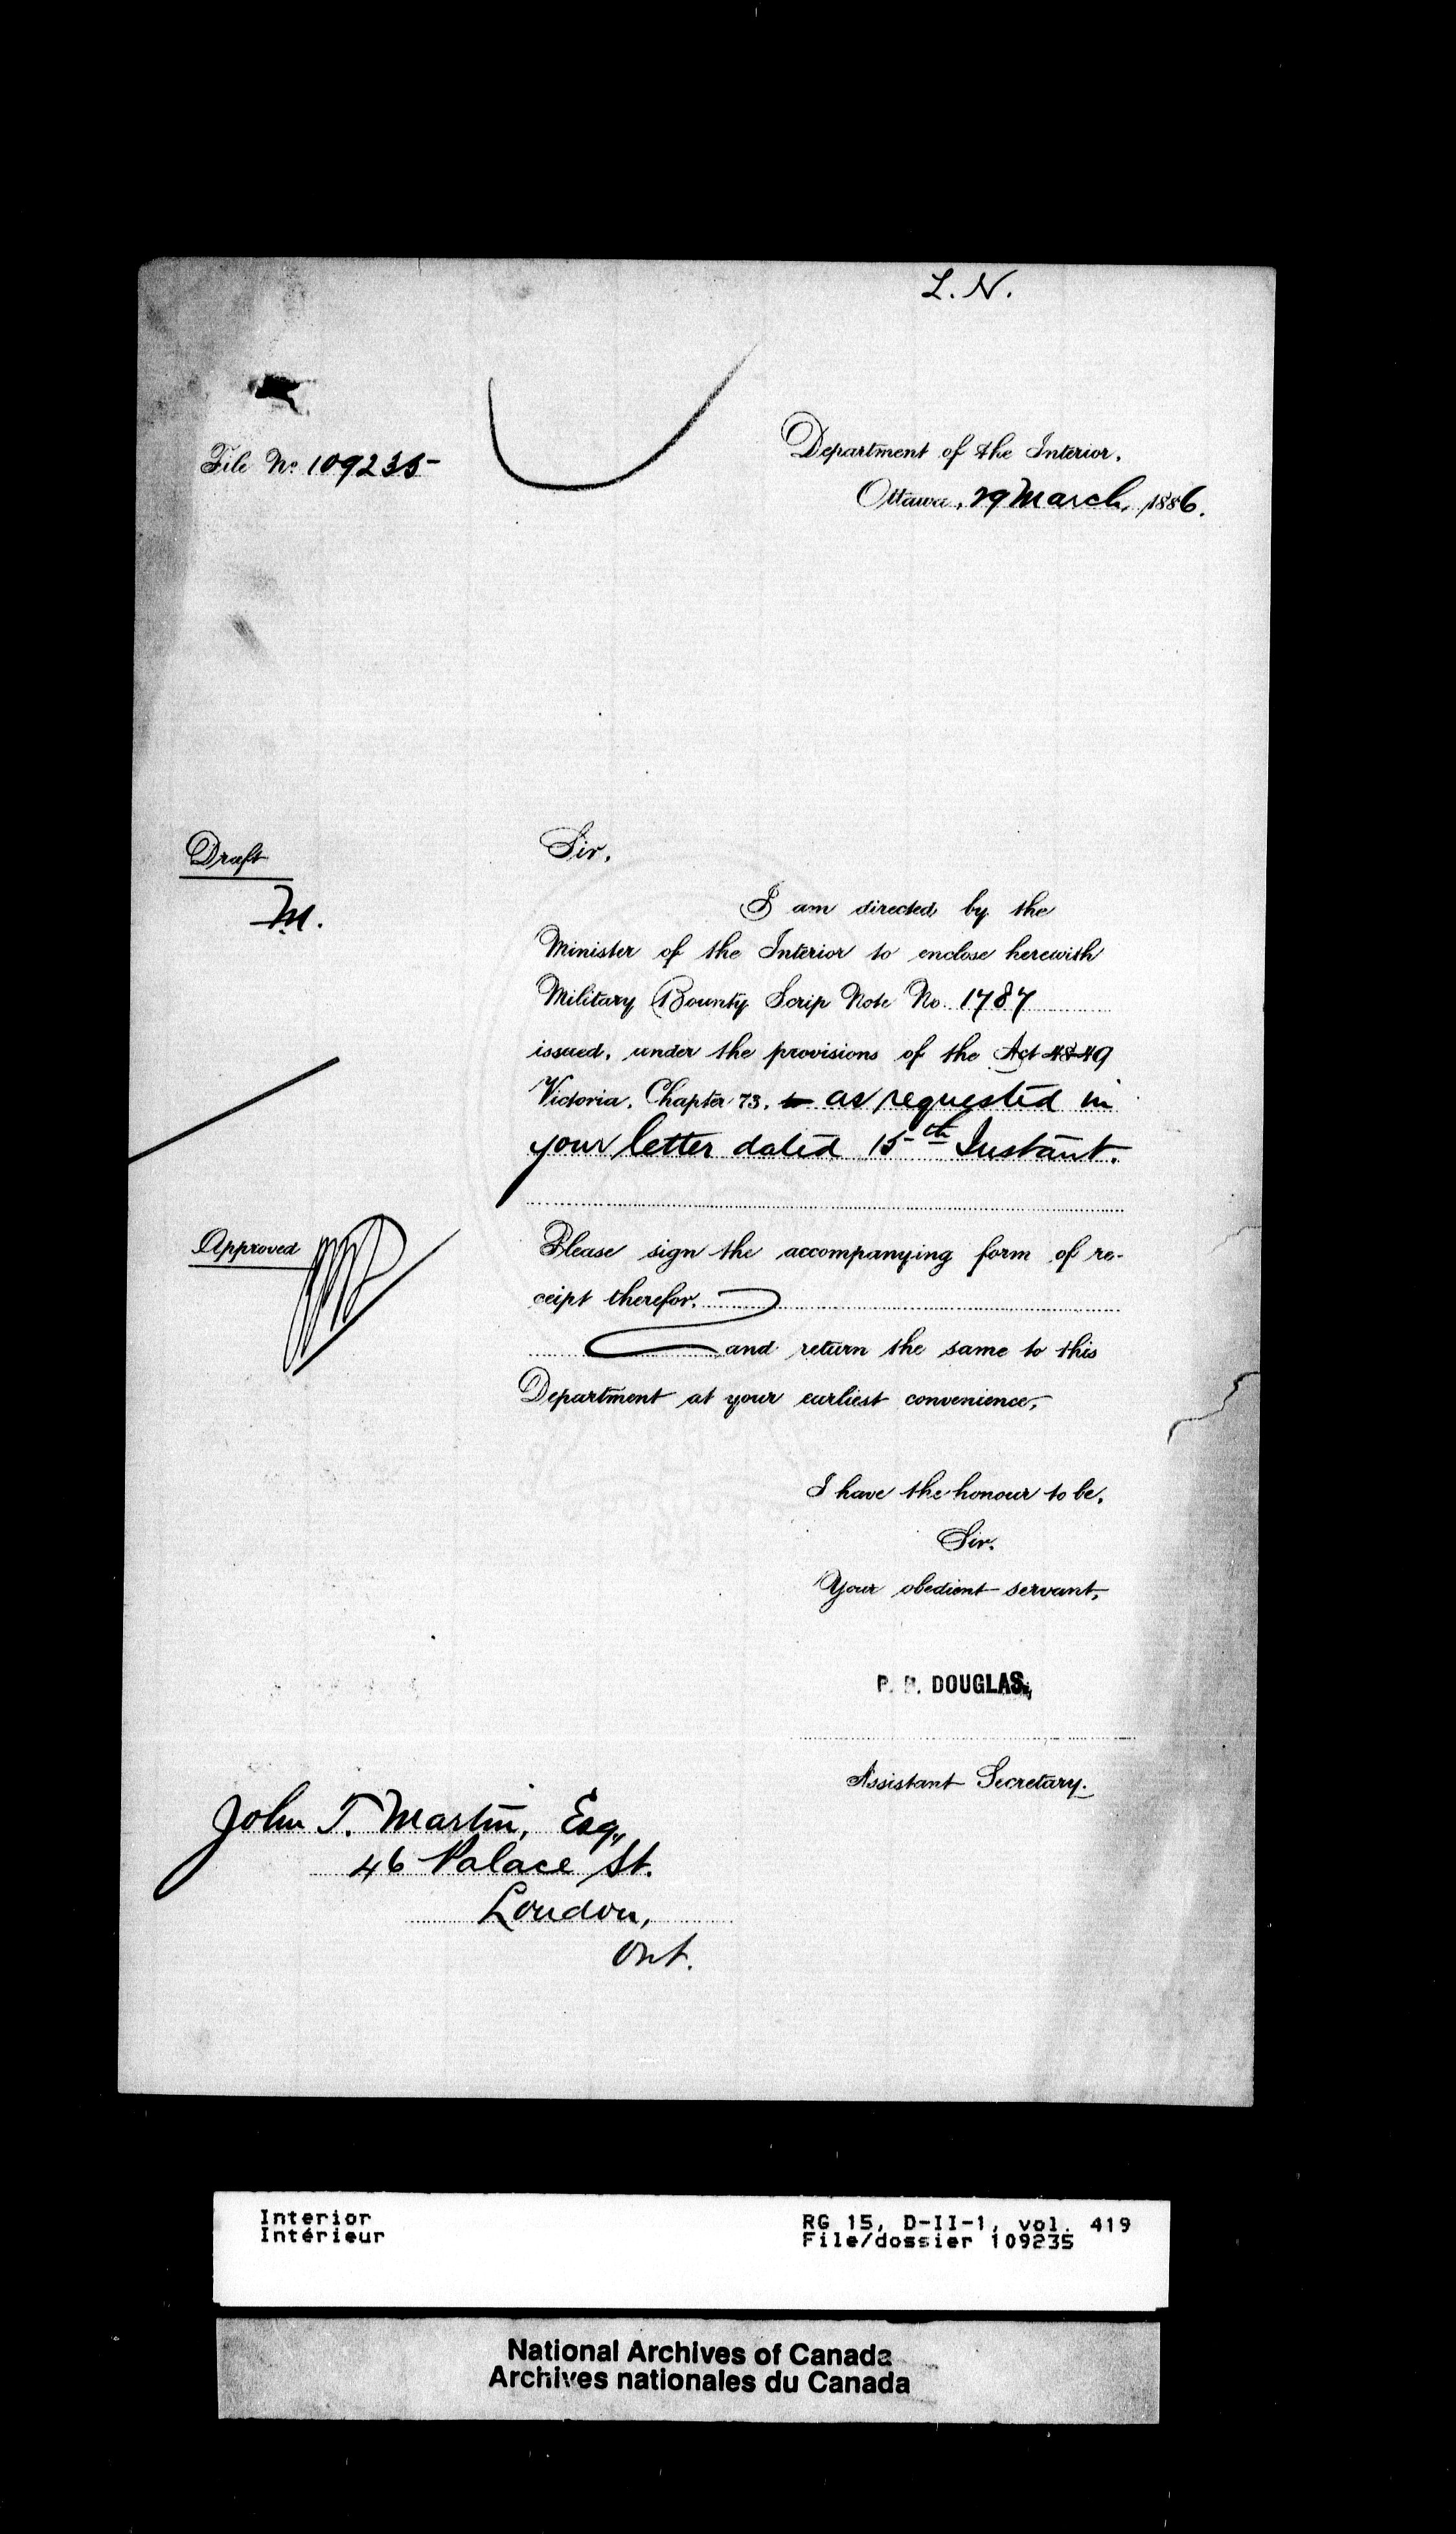 L. N.
File No. 109235
Department of the Interior.
Ottawa, 29 March, 1886.
Draft
M.
Sir,
I am directed by the
Minister of the Interior to enclose herewith
Military Bounty Scrip Note No. 1787
issued, under the provisions of the Act 48-49
Victoria, Chapter 73, as requested in
your letter dated 15th Instant.
Approved
Please sign the accompanying form of re-
ceipt therefor.
and return the same to this
Department at your earliest convenience,
I have the honour to be,
Sir.
Your obedient servant,
DOUGLAS,
Assistant Secretary.
John T. Martin, Esq.,
46 Palace St.
London,
Ont.
Interior
Intérieur
RG 15, D-II-1, vol. 419
File/dossier 109235
National Archives of Canada
Archives nationales du Canada